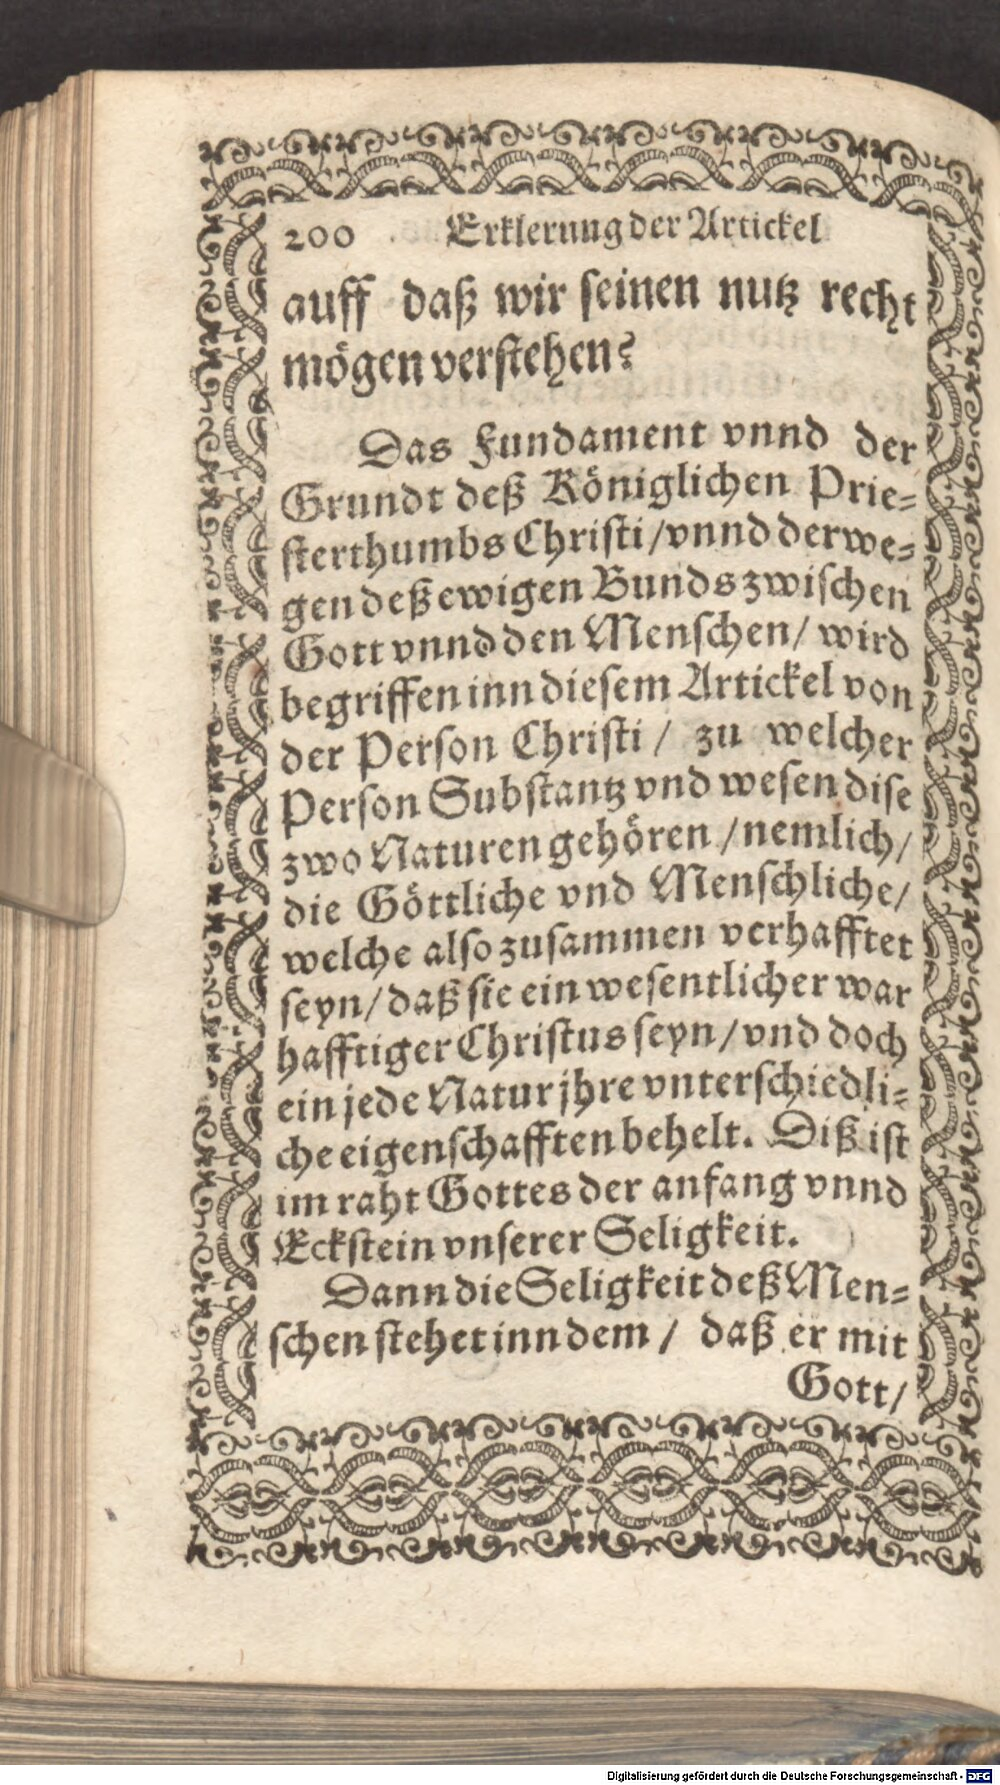 200 Erklerung der Artickel
auff daß wir seinen nutz recht
mögen verstehen?
Das Fundament vnnd der
Grundt deß Königlichen Prie=
sterthumbs Christi/vnnd derwe=
gen deß ewigen Bunds zwischen
Gott vnnd den Menschen/ wird
begriffen inn diesem Artickel von
der Person Christi/ zu welcher
Person Substantz vnd wesen dise
zwo Naturen gehören/nemlich/
die Göttliche vnd Menschliche/
welche also zusammen verhafftet
seyn/daß sie ein wesentlicher war
hafftiger Christus seyn/vnd doch
ein jede Natur jhre vnterschiedli=
che eigenschafften behelt. Diß ist
im raht Gottes der anfang vnnd
Eckstein vnserer Seligkeit.
Dann die Seligkeit deß Men=
schen stehet inn dem/ daß er mit
Gott/
Digitalisierung gefördert durch die Deutsche Forschungsgemeinschaft - DFG